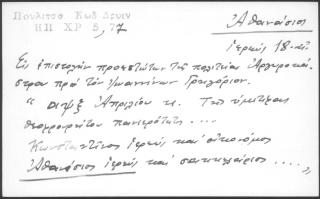 Πουλίτσα Κωδ Δρυιν
ΗΠ ΧΡ 5, 77
Ἀθανάσιος
ἱερεύς 18-ος
Εἰς ἐπιστολήν προεστώτων τῆς πολιτείας Ἀργυροκά-
στρου πρὸς τόν Ἰωαννίνων Γρηγόριον.
" αψξ Ἀπριλίου κ. Τῆς ὑμετέρας
θεοφρουρήτου πανιερότητος ....
Κωνσταντῖνος ἱερεύς καί οἰκονόμος
Ἀθανάσιος ἱερεύς καί σακελλάριος ....,